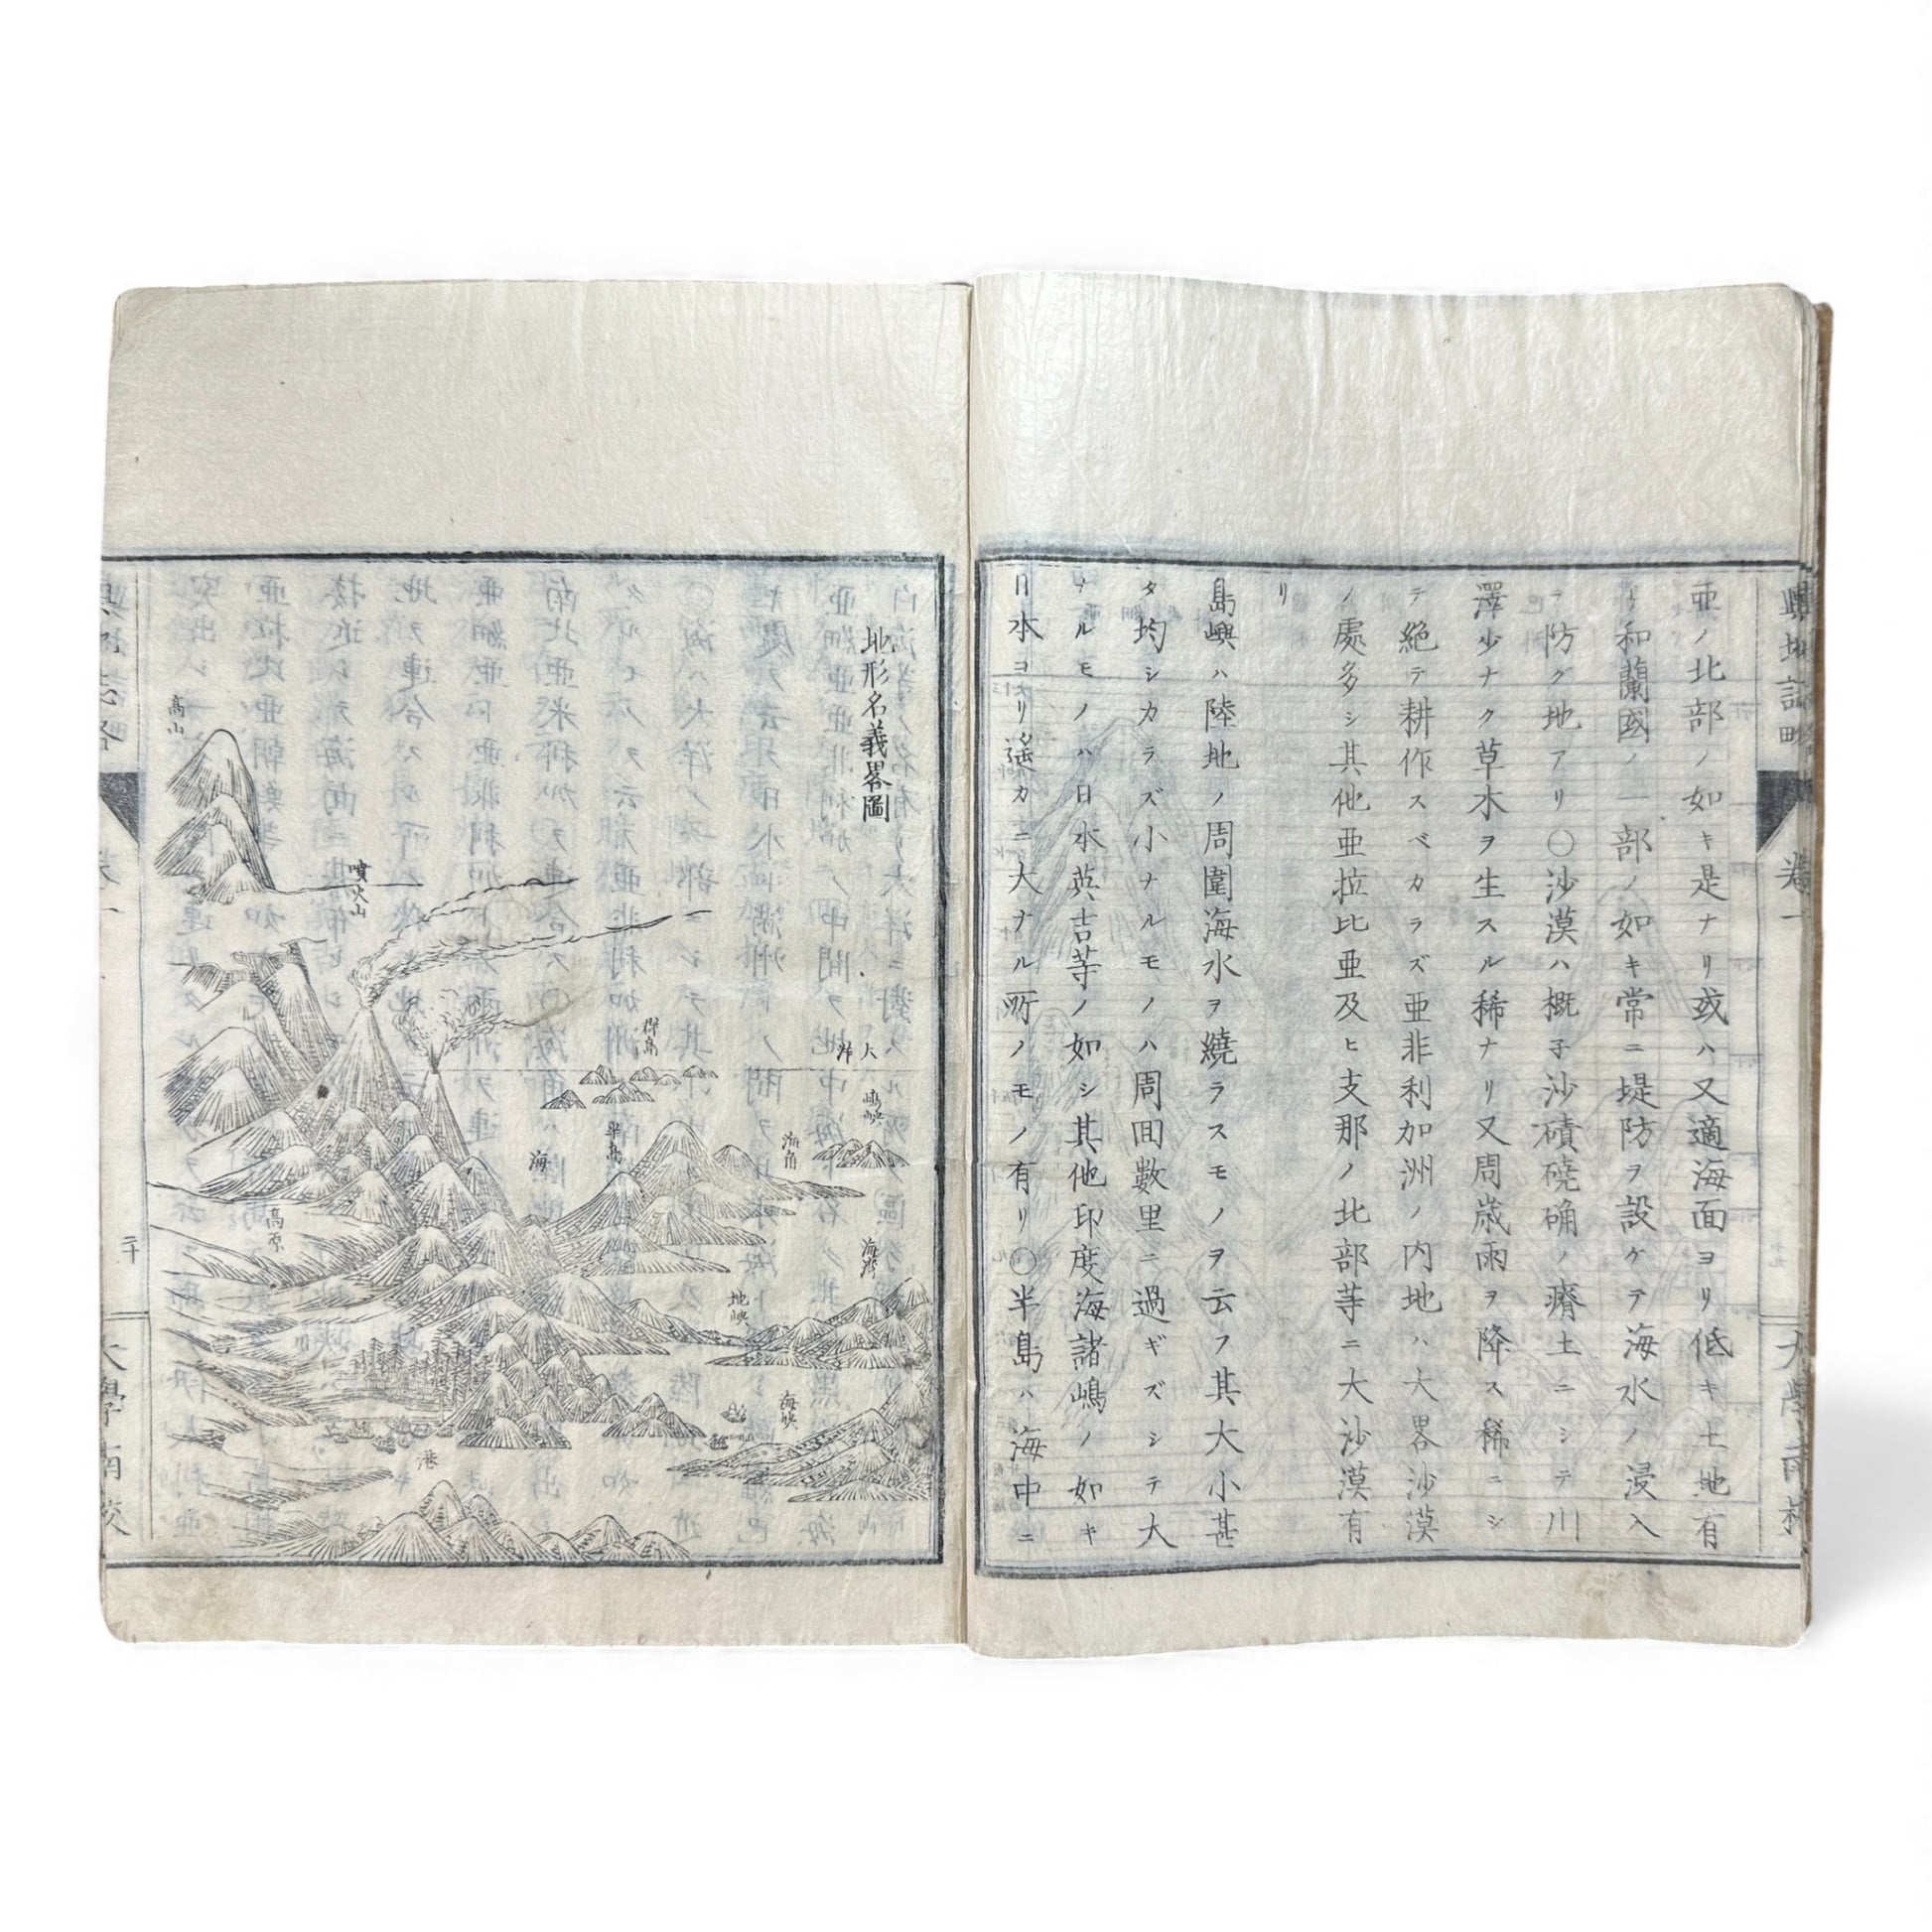 輿地誌略
卷一
大學南校
亜ノ北部ノ如キ是ナリ或ハ又適海面ヨリ低キ土地有
リ和蘭國ノ一部ノ如キ常ニ堤防ヲ設ケテ海水ノ浸入
ヲ防グ地アリ〇沙漠ハ概子沙磧磽确ノ瘠土ニシテ川
澤少ナク草木ヲ生スル稀ナリ又周歳雨ヲ降ス稀ニシ
テ絶テ耕作スベカラズ亜非利加洲ノ内地ハ大畧沙漠
ノ處多シ其他亜拉比亜及ヒ支那ノ北部等ニ大沙漠有
リ
島嶼ハ陸地ノ周圍海水ヲ繞ラスモノヲ云フ其大小甚
タ均シカラズ小ナルモノハ周囬數里ニ過ギズシテ大
ナルモノハ日本英吉等ノ如シ其他印度海諸嶋ノ如キ
日本ヨリ遥カニ大ナル所ノモノ有リ〇半島ハ海中ニ
地形名義畧圖
高山
噴火山
群島
大洋
嶋嶼
海角
半島
海
高原
海湾
地峡
海峡
港
卷一
二十
大學南校